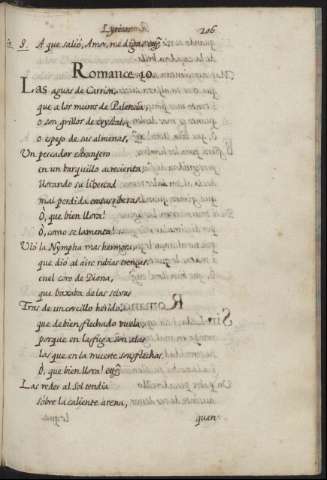 Lyricas. 206
8. A que salió, Amor, me digas. etc.
Romance. 10.
Las aguas de Carrion,
que a los muros de Palencia
o son grillos de crystal,
o espejo de sus almenas,
Un pescador estrangero
en un barquillo acrecienta,
llorando su libertad
mal perdida en sus riberas.
O, que bien llora!
O, como se lamenta!
Vió la Nympha mas hermosa,
que dió al aire rubias trenças,
en el coro de Diana,
que baxaba de las selvas
Tras de un cervillo herido,
que de bien flechado vuela,
porque en la fuga son alas
las que en la muerte son flechas.
O, que bien llora! etc.
Las redes al sol tendia
sobre la caliente arena,
quan-